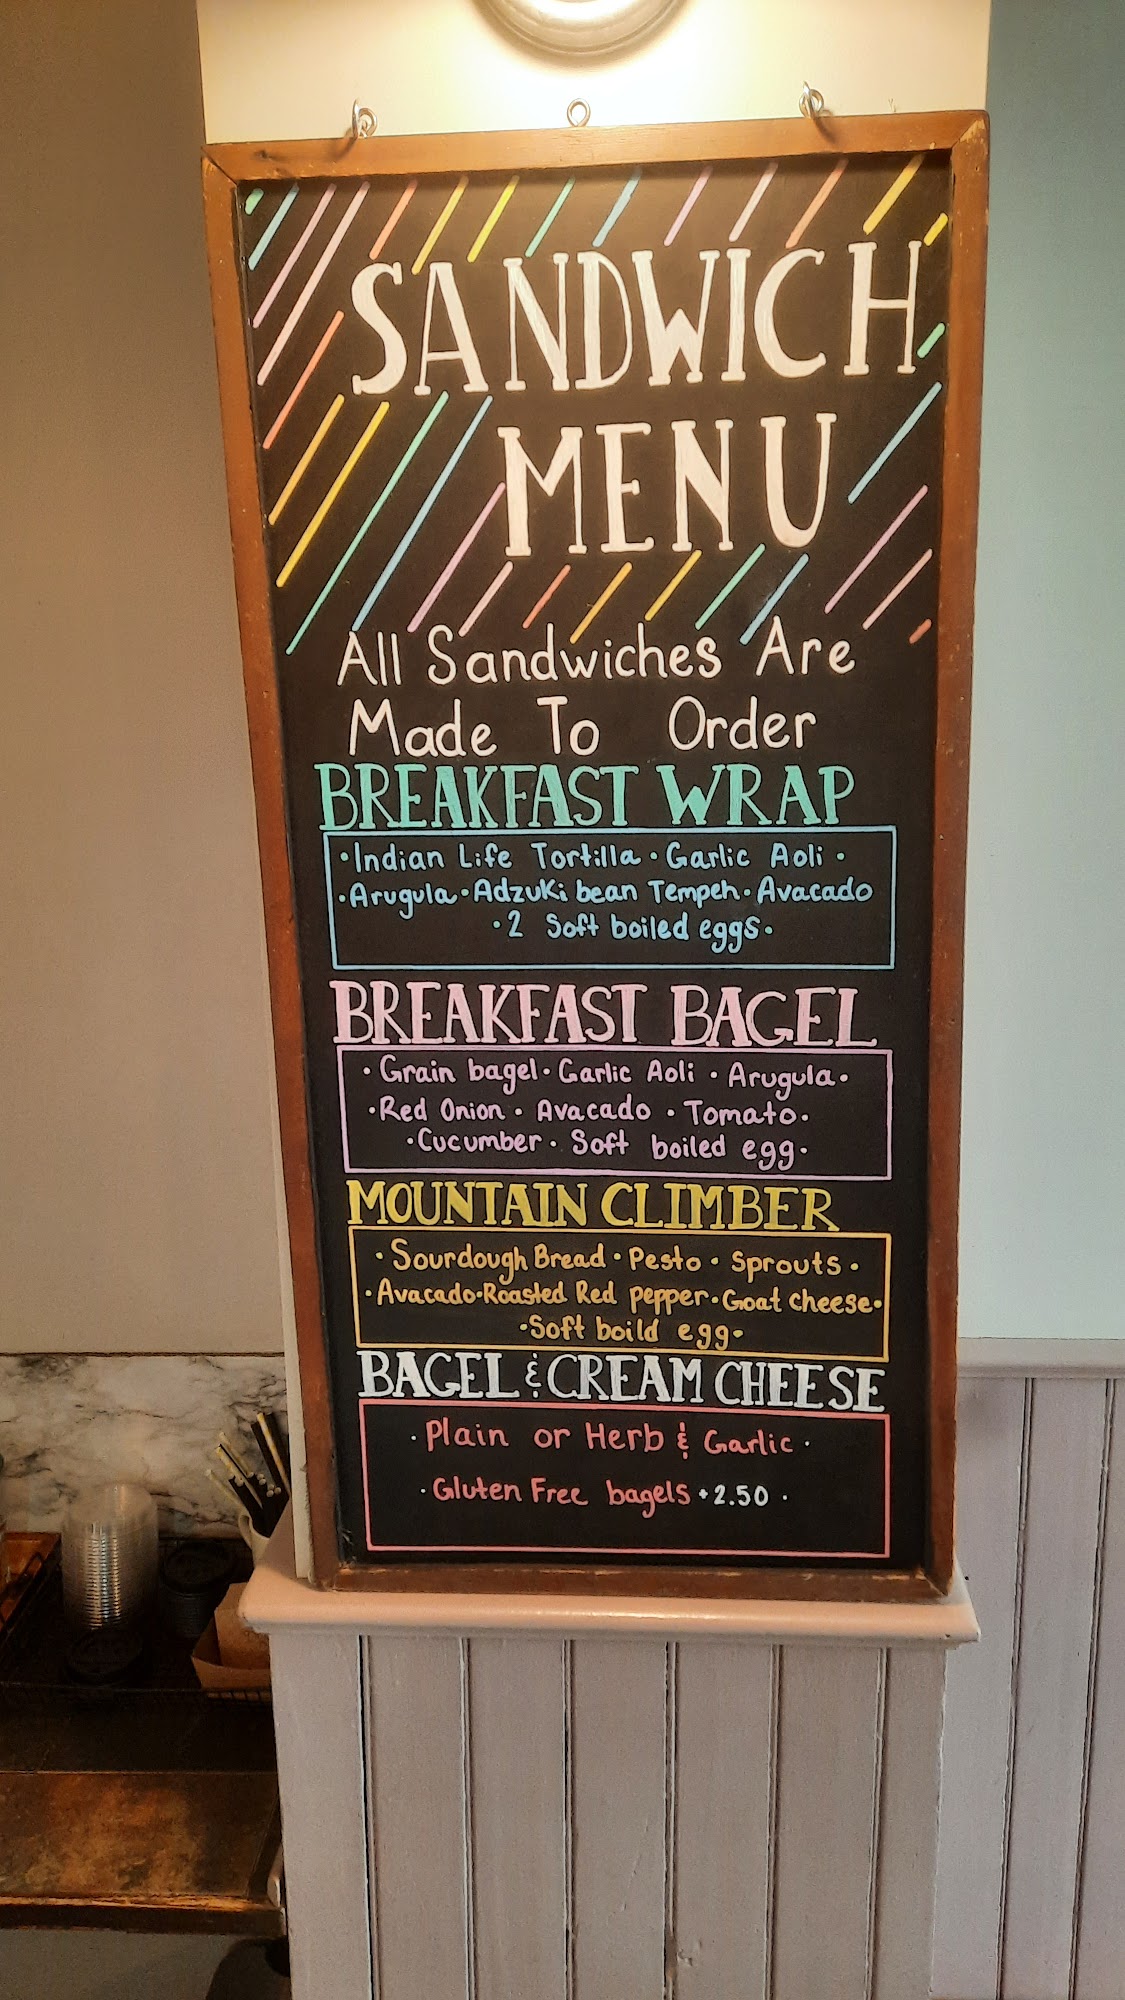 SANDWICH
MENU
All Sandwiches Are
Made To Order
BREAKFAST WRAP
•Indian Life Tortilla • Garlic Aoli •
•Arugula•Adzuki bean Tempeh•Avacado
•2 Soft boiled eggs•
BREAKFAST BAGEL
•Grain bagel•Garlic Aoli • Arugula•
•Red Onion • Avacado • Tomato•
•Cucumber• Soft boiled egg•
MOUNTAIN CLIMBER
•Sourdough Bread • Pesto • Sprouts •
•Avacado•Roasted Red pepper•Goat cheese•
•Soft boild egg•
BAGEL & CREAM CHEESE
•Plain or Herb & Garlic •
•Gluten Free bagels +2.50 •